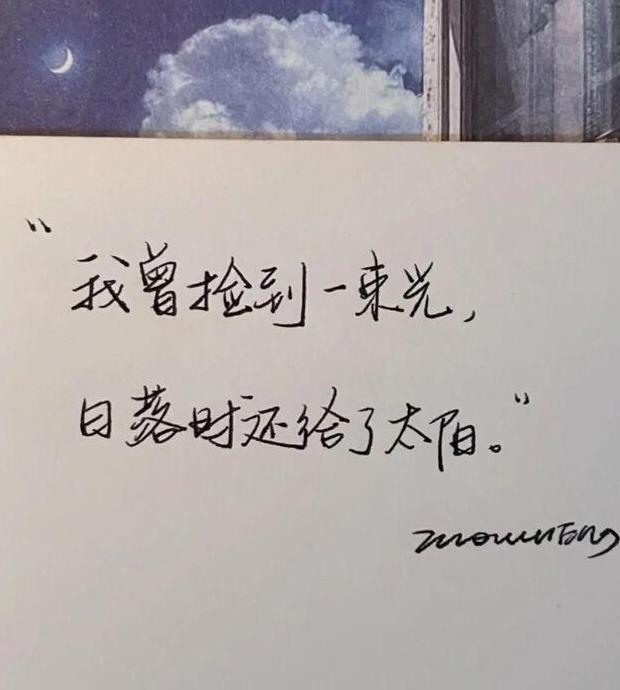 “我曾捡到一束光，
日落时还给了太阳。”